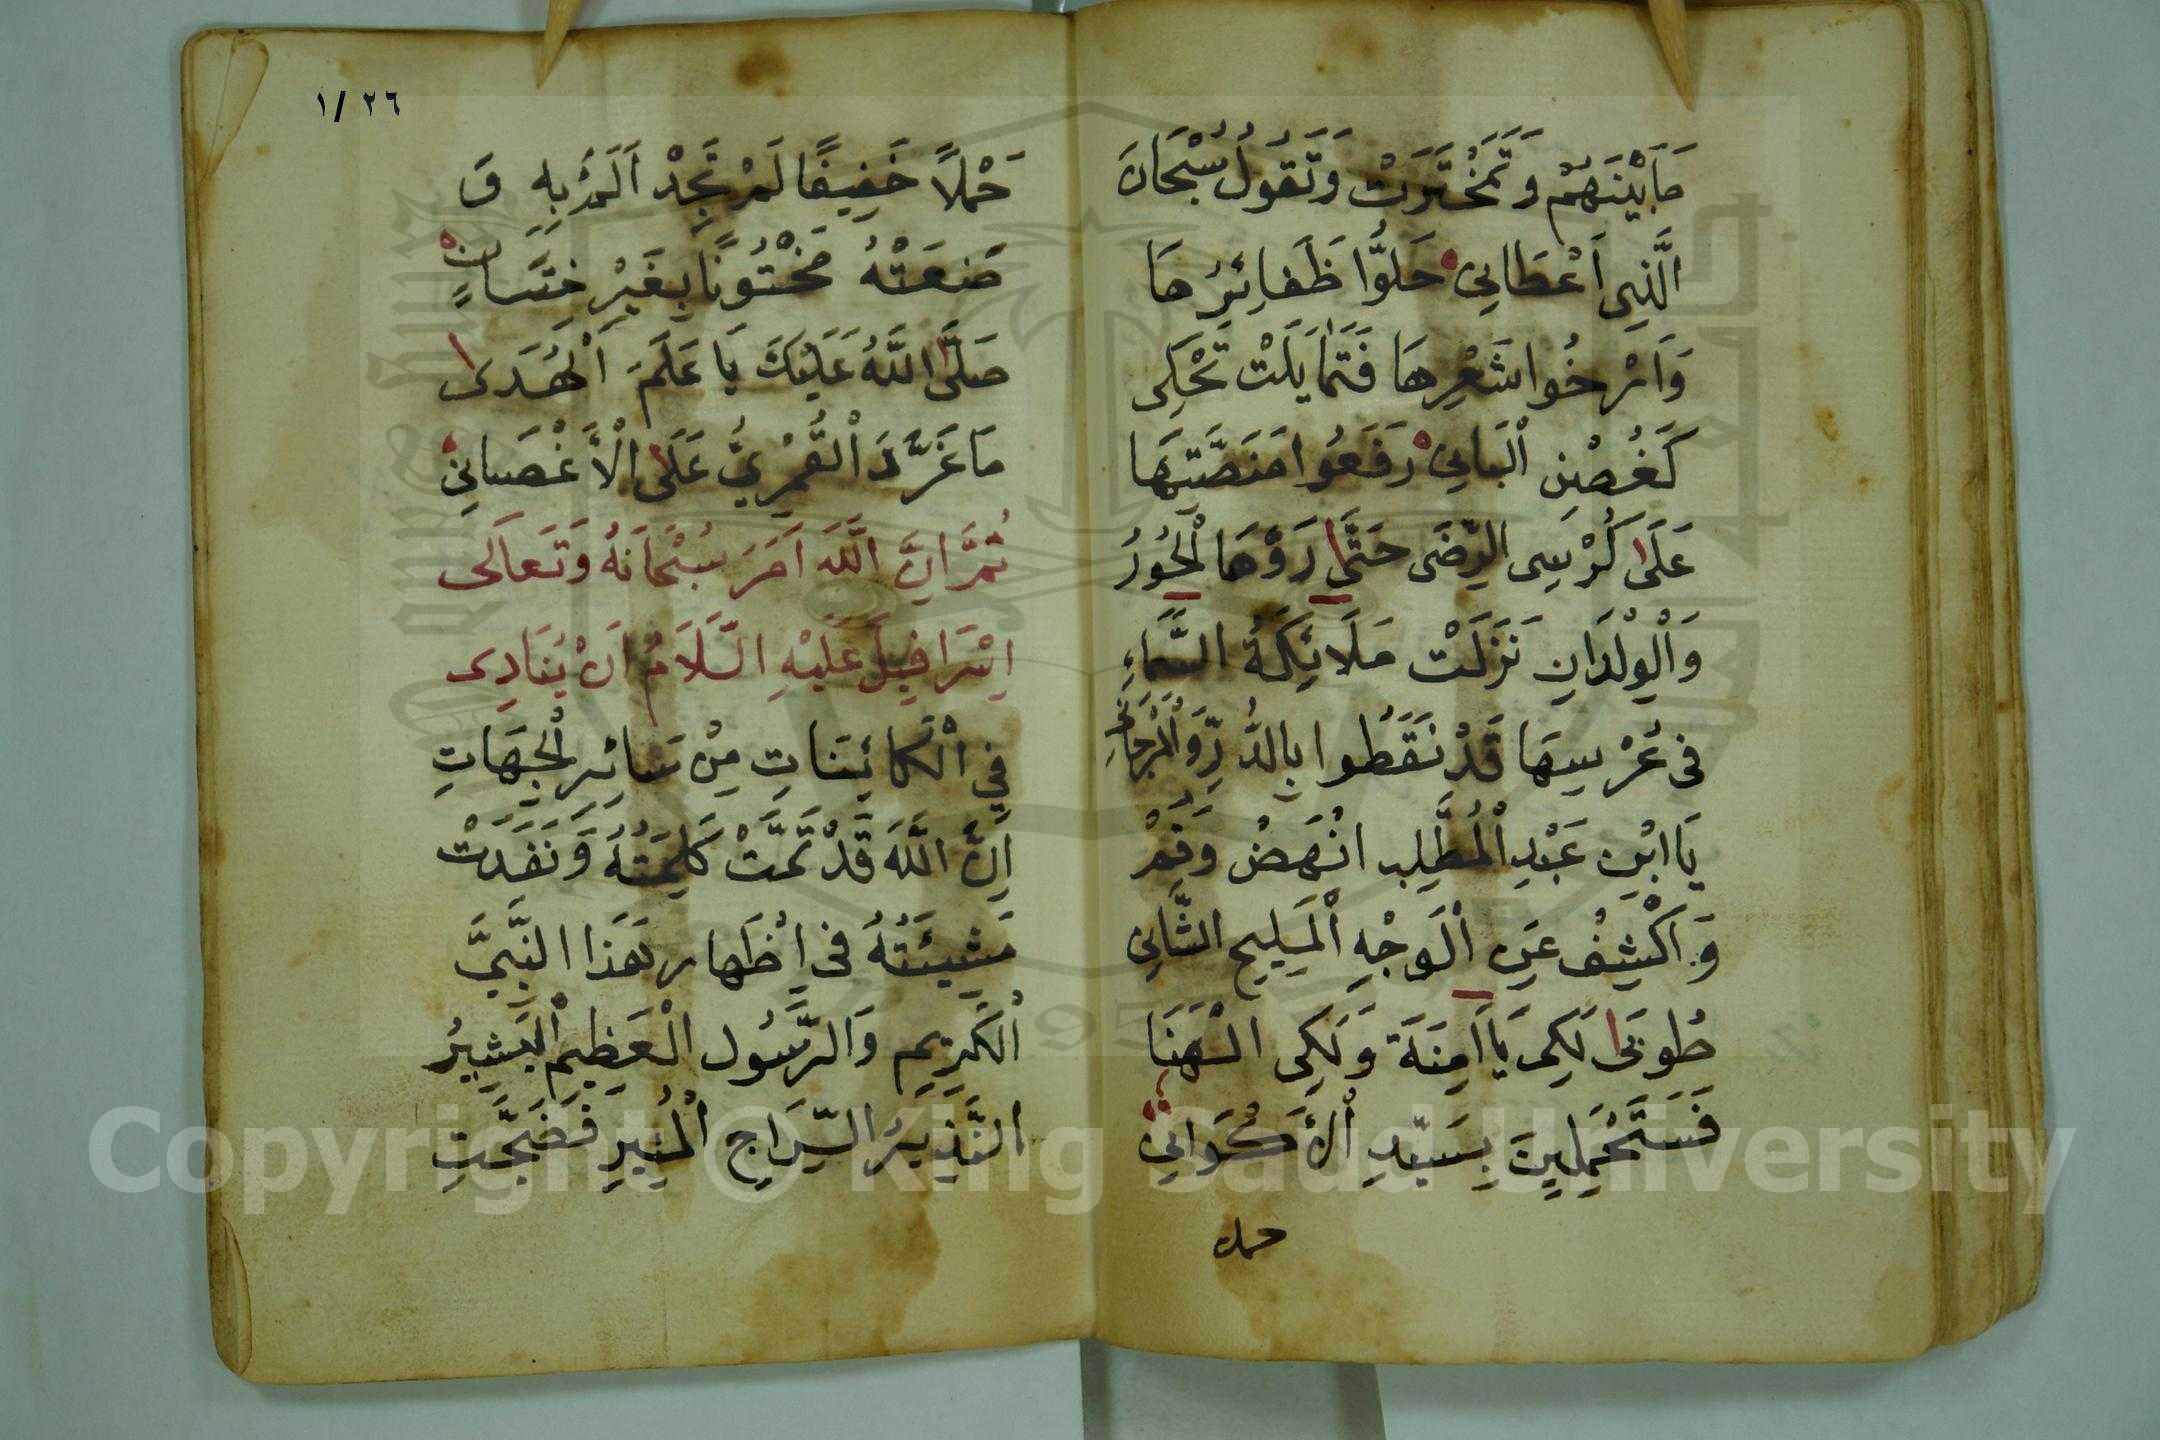 مَا بَيْنَهُمْ وَتَمَخْتَرَتْ وَتَقُولُ سُبْحَانَ
الَّذِي اَعْطَانِي حَلُّوا ظَفَائِرُهَا
وَاَرْخُوا شَعْرِهَا فَتَمَايَلَتْ تَحْكِى
كَغُصْنِ الْبَانِ رَفَعُوا مَنَصَّتِهَا
عَلَى كُرْسِى الرِّضَى حَتَّى رَؤْهَا الْحُورُ
وَالْوِلْدَانِ نَزَلَتْ مَلَائِكَةُ السَّمَاءِ
فى عُرْسِهَا قَدْ نَقَطُوا بِالدُّرِّ وَالْمَرْجَانِ
يَا ابْنِ عَبْدِ الْمُطَّلِبِ انْهَضْ وَقُمْ
وَاَكْشِفْ عَنِ الْوَجْهِ الْمَلِيحِ الثَّانِى
طُوبَى لَكِى يَا اَمِنَةَ وَلَكِى الْهَنَا
فَسَتَحْمِلِينَ بِسَيِّدِ الْأَكْوَانِ
حملا
١/٢٦
حَمْلًا خَفِيفًا لَمْ تَجِدْ اَلَمً بِهِ وَ
ضَعَتْهُ مَخْتُونًا بِغَيْرِ خِتَانٍ
صَلَّى اللَّهُ عَلَيْكَ يَا عَلَمَ الْهُدَى
مَا غَرَّدَ الْقُمْرِيُّ عَلَى الْأَغْصَانِ
ثُمَّ اِنَّ اللَّهَ اَمَرَ سُبْحَانَهُ وَتَعَالَى
اِسْرَافِيلَ عَلَيْهِ السَّلَامُ اَنْ يُنَادِى
فِي الْكَائِنَاتِ مِنْ سَائِرِ الْجِهَاتِ
اِنَّ اللَّهَ قَدْ تَمَّتْ كَلِمَتُهُ وَنَفَدَتْ
مَشِيئَتُهُ فى اِظْهَارِ هَذَا النَّبِيِّ
الْكَرِيمِ وَالرَّسُولِ الْعَظِيمِ الْبَشِيرُ
النَّذِيرُ السِّرَاجِ الْمُنِيرِ فَضَجَّتِ
Copyright © King Saud University